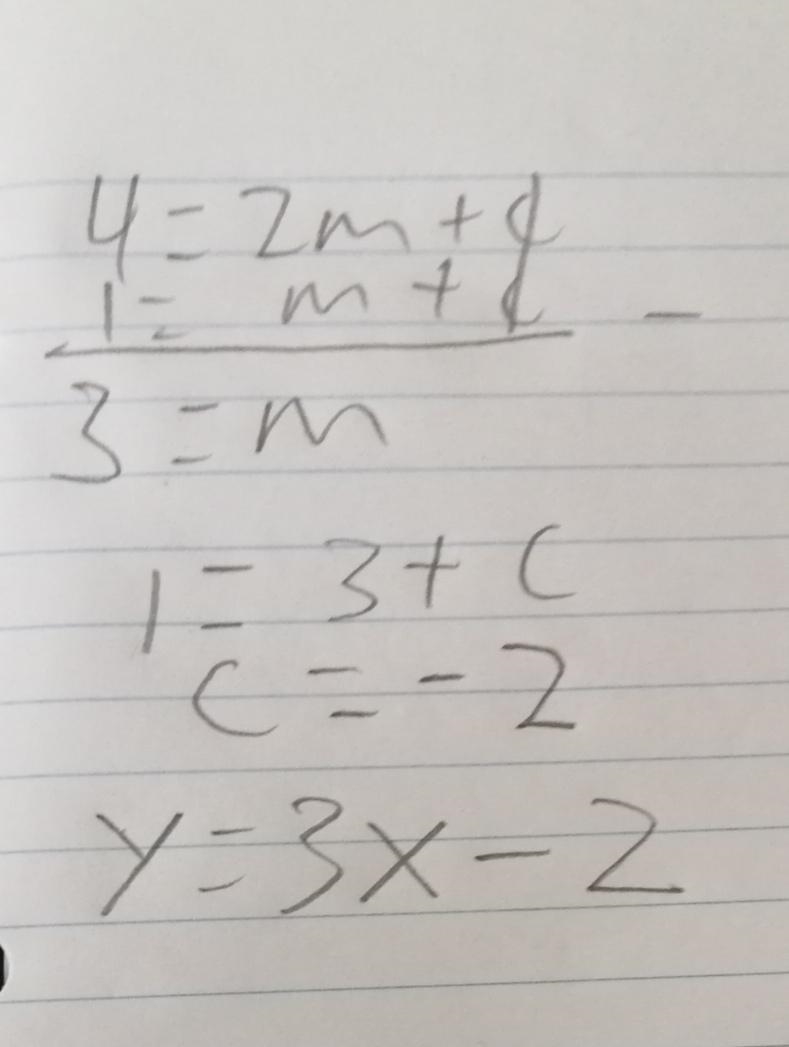 4 = 2m + c
1 = m + c -
3 = m
1 = 3 + c
c = -2
y = 3x - 2